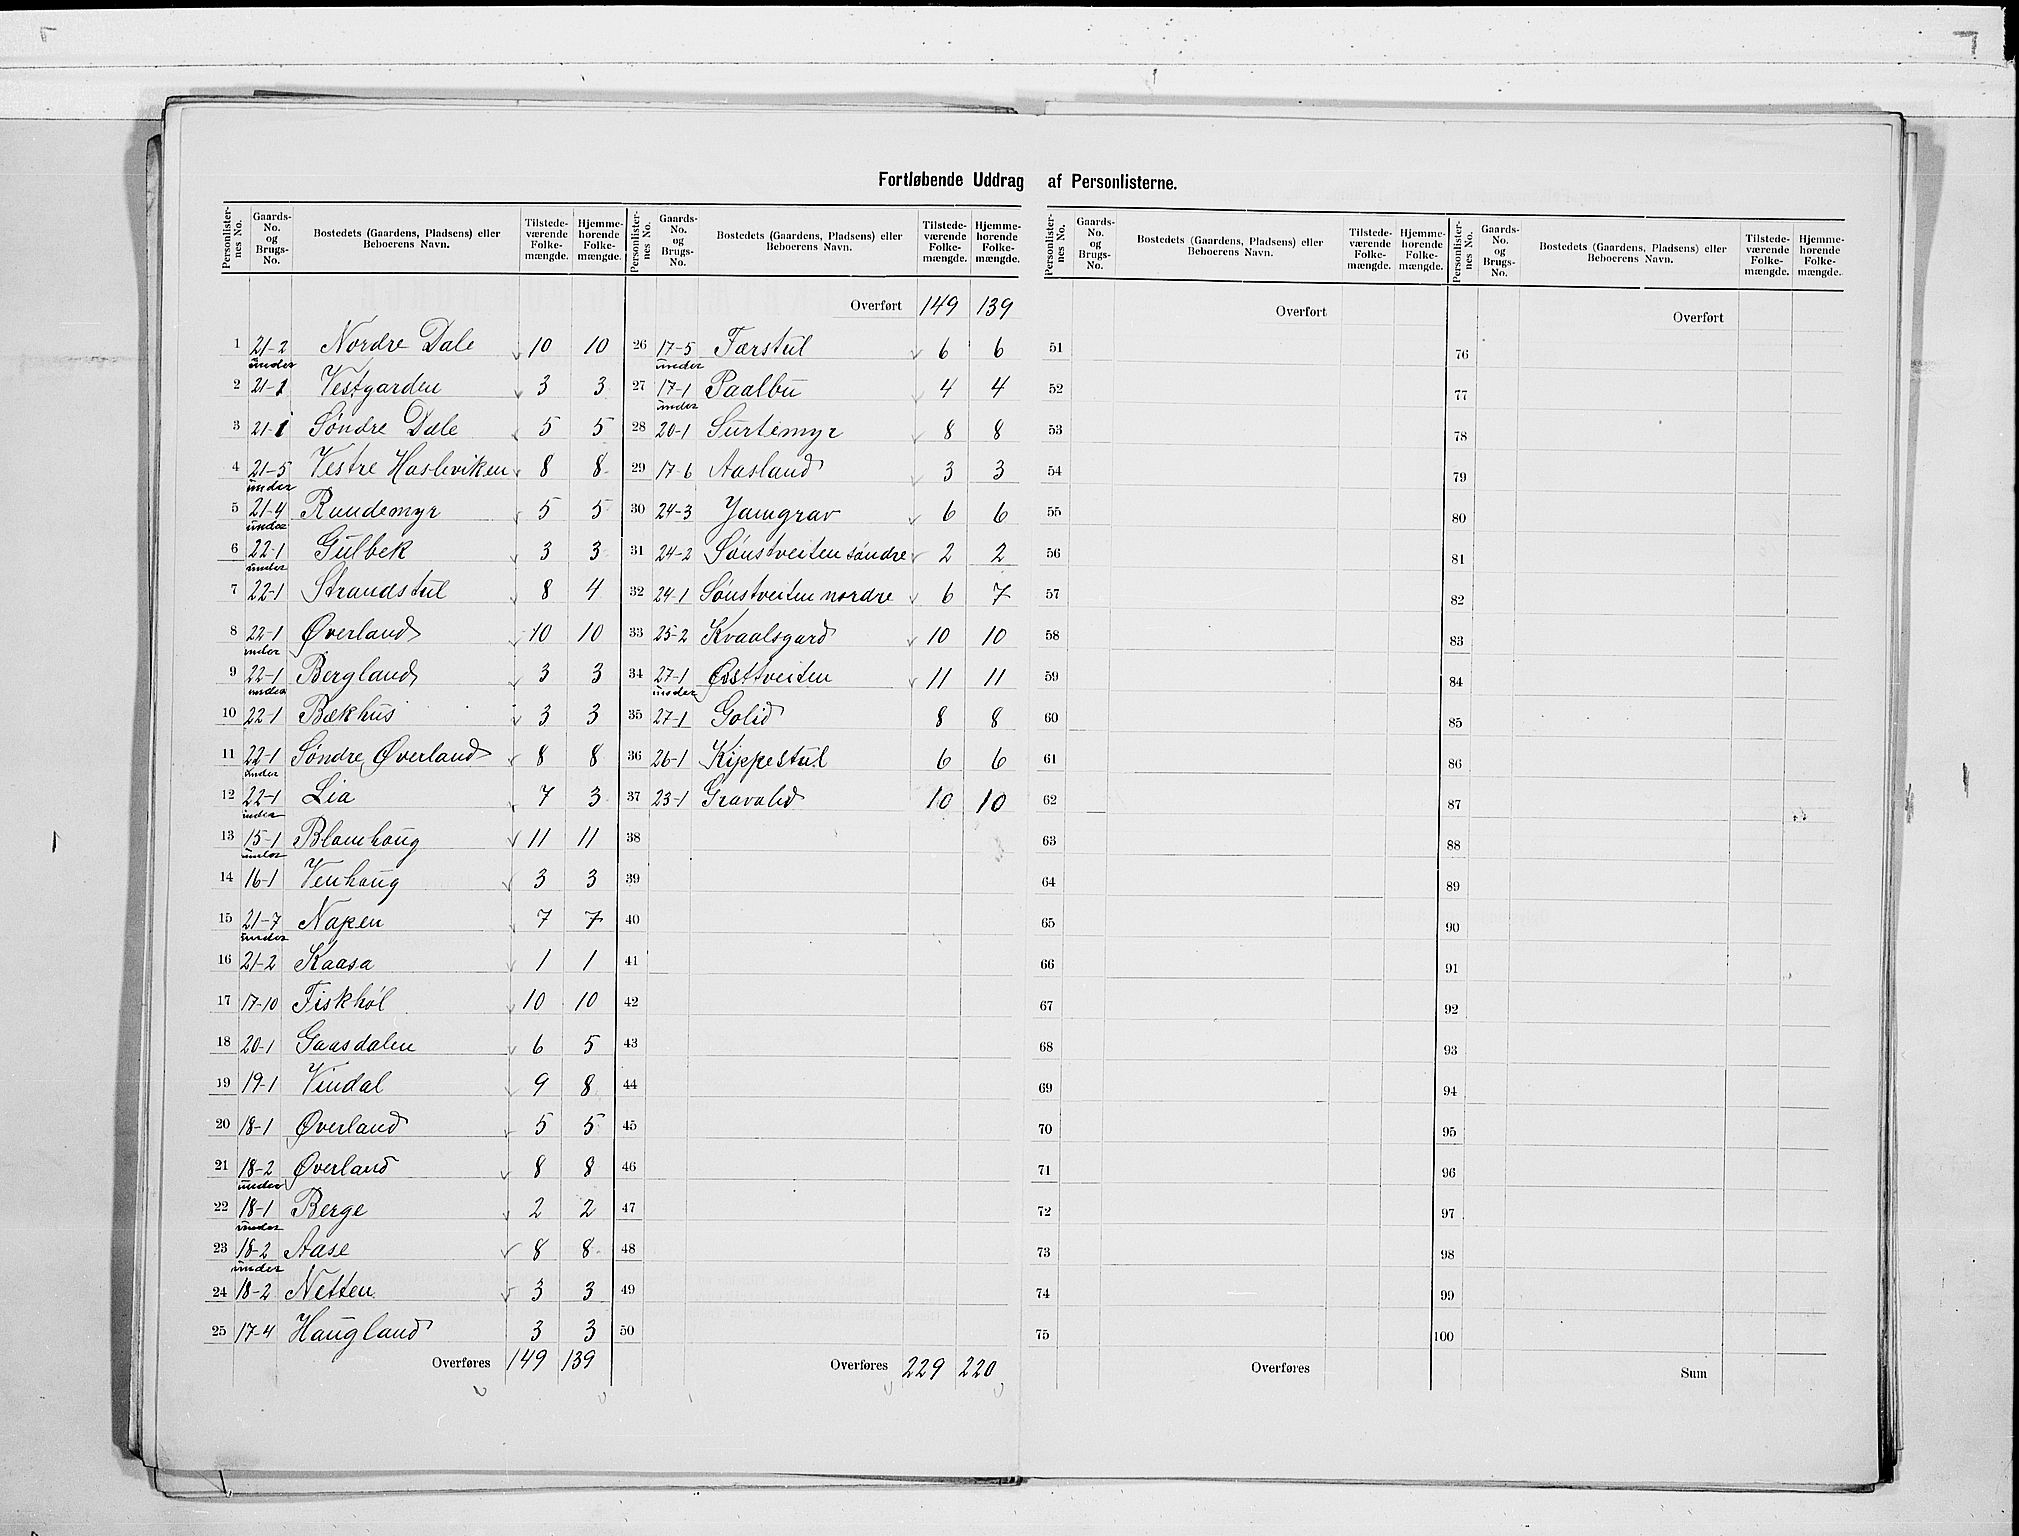 Fortløbende Uddrag af Personlisterne.
Personlister-nes No. | Gaards-No. og Brugs-No. | Bostedets (Gaardens, Pladsens) eller Beboerens Navn. | Tilstede-værende Folke-mængde. | Hjemme-hørende Folke-mængde.
1 21-2 Nordre Dale 10 10
under
2 21-1 Vestgarden 3 3
3 21-1 Søndre Dale 5 5
4 21-5 Vestre Hasleviken 8 8
under
5 21-4 Rundemyr 5 5
under
6 22-1 Gulbek 3 3
under
7 22-1 Strandstul 8 4
8 22-1 Øverland 10 10
under
9 22-1 Bergland 3 3
under
10 22-1 Bækhus 3 3
11 22-1 Søndre Øverland 8 8
under
12 22-1 Lia 7 3
under
13 15-1 Blomhaug 11 11
under
14 16-1 Venhaug 3 3
15 21-7 Napen 7 7
under
16 21-2 Kaasa 1 1
17 17-10 Fiskhøl 10 10
18 20-1 Gaasdalen 6 5
19 19-1 Vindal 9 8
20 18-1 Øverland 5 5
21 18-2 Øverland 8 8
under
22 18-1 Berge 2 2
under
23 18-2 Aase 8 8
under
24 18-2 Netten 3 3
25 17-4 Haugland 3 3
Overføres 149 139
Personlister-nes No. | Gaards-No. og Brugs-No. | Bostedets (Gaardens, Pladsens) eller Beboerens Navn. | Tilstede-værende Folke-mængde. | Hjemme-hørende Folke-mængde.
Overført 149 139
26 17-5 Færstul 6 6
under
27 17-1 Paalbu 4 4
under
28 20-1 Surtemyr 8 8
29 17-6 Aasland 3 3
30 24-3 Jamgrav 6 6
31 24-2 Sønstveiten søndre 2 2
32 24-1 Sønstveiten nordre 6 7
33 25-2 Kvaalsgard 10 10
34 27-1 Østtveiten 11 11
under
35 27-1 Golid 8 8
36 26-1 Kippestul 6 6
37 23-1 Gravalid 10 10
38
39
40
41
42
43
44
45
46
47
48
49
50
Overføres 229 220
Personlister-nes No. | Gaards-No. og Brugs-No. | Bostedets (Gaardens, Pladsens) eller Beboerens Navn. | Tilstede-værende Folke-mængde. | Hjemme-hørende Folke-mængde.
Overført
51
52
53
54
55
56
57
58
59
60
61
62
63
64
65
66
67
68
69
70
71
72
73
74
75
Overføres
Personlister-nes No. | Gaards-No. og Brugs-No. | Bostedets (Gaardens, Pladsens) eller Beboerens Navn. | Tilstede-værende Folke-mængde. | Hjemme-hørende Folke-mængde.
Overført
76
77
78
79
80
81
82
83
84
85
86
87
88
89
90
91
92
93
94
95
96
97
98
99
100
Sum